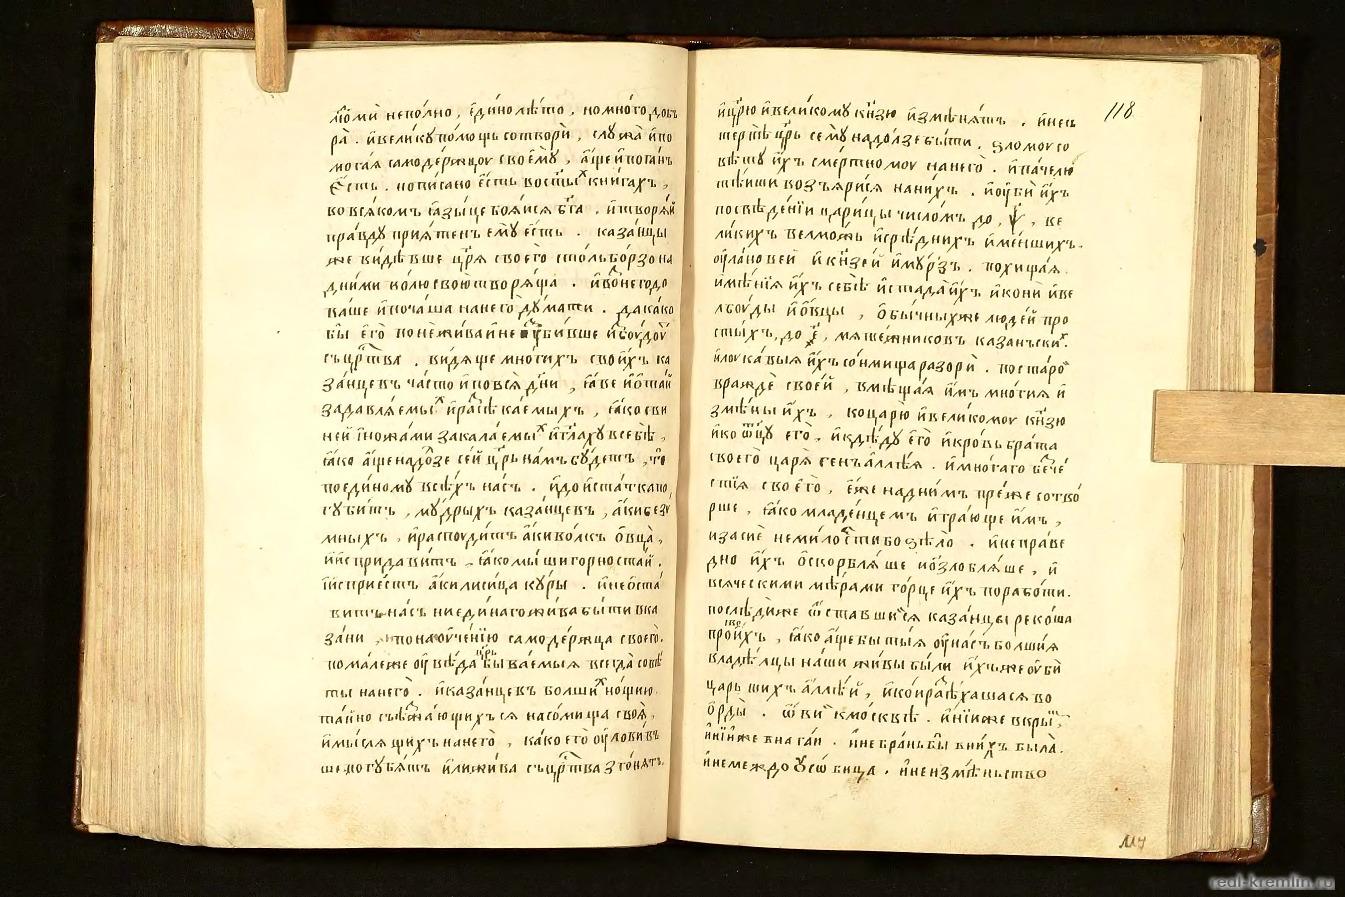 лѣтоми неполно, едінолѣто, номного довъ
ра. ивеликупомощь сотвори, служа ипо
могая самодержцоу своему, аще ипоганъ
есть. пописано есть востⷯы книгахъ,
во всякомъ языце бояися бга. итворяй
правду приятенъ ему есть. казанцы
же видѣвше цря своего столь борзо на
дними волю свою творяща. ивонегодо
ваше ипочаша нанего думати. дакако
бы его
сцрства. видяще многихъ своихъ ка
занцевъ часто иповся дни, яве иотай
задавляемыⷯ ирасѣкаемыхъ, яко сви
ней иножами закалаемыⷯ иглаху всебѣ,
яко аще надолзе сей црь намъ будетъ, то
поединому всѣхъ насъ. идоистатка по
губитъ, мудрыхъ казанцевъ, аки безу
мныхъ, ираспоудитъ аки волкъ овца,
иисридавитъ, якомыши горностай.
иисприестъ аки лисица куры. инеоста
витъ насъ ниединаго жива быти вка
зани, понаоучению самодержца своего.
помалеже оувѣда црь бываемыя всегда совѣ
ты нанего. иказанцевъ болшиⷯ нощию
тайно съѣзжающихъся насомища своя,
имыслящихъ нанего, какоего оуловивъ
ше погубятъ илижива сцрства згонятъ.
ицрю ивеликому кнзю измѣнятъ. инеѡ
терпѣ црь сему надолзе быти, зломоу со
вѣту ихъ смертномоу нанего. ипачелю
тѣйши возъярися нанихъ. иоуби ихъ
посвѣдении царицы числомъ до, ѱ, ве
ликихъ велможъ исрѣднихъ именшихъ.
оуланов ей икнзей имурзъ. похищая
имѣния ихъ себѣ истада ихъ икони иве
льбуды иовцы, обычныхже людей про
стыхъ, до, е, мятежниковъ казанъскиⷯ.
илоукавыя ихъ сонмища разори. постарои
вражде своей, вмѣщая имъ многия и
змѣны ихъ, коцарю ивеликомоу кнзю
ико ѿцу его, икдѣду его икровь брата
своего царя сенъаллѣя. имногаго бече
стия своего, еже наднимъ преже сотво
рше, яко младенцемъ играюще имъ,
изасие немилостивозѣло. инеправе
дно ихъ оскорбляше иозлобляше, и
всяческими мѣрами горце ихъ поработи.
послѣдиже ѿставшися казанцы рекоша
яко аще бы тыя оунасъ болшия
владѣлцы наши живы были ихъже оуби
царь шихъаллѣй, и
орды. кмосквѣ. инииже вкрыⷨ,
инииже внагаи. инебраньбы внихъ была.
инемеждоусобица. инеизмѣньство
118
117
real-kremlin.ru